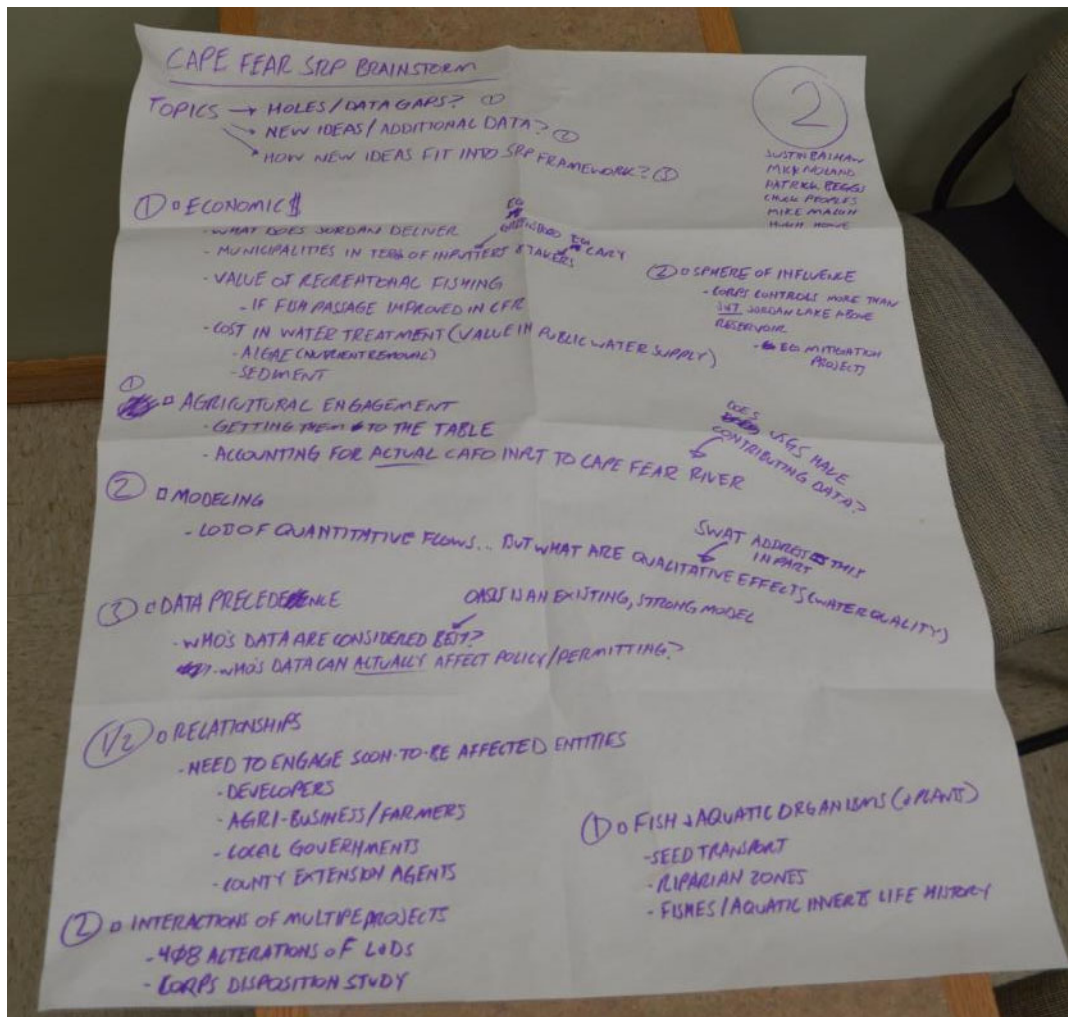 CAPE FEAR SRP BRAINSTORM
TOPICS → HOLES/DATA GAPS? ①
→ NEW IDEAS/ADDITIONAL DATA? ②
→ HOW NEW IDEAS FIT INTO SRP FRAMEWORK? ③
2
PATRICK BEGGS
CHUCK PEOPLES
① ECONOMIC $
- WHAT DOES JORDAN DELIVER
EG GREENSBORO EG CARY
- MUNICIPALITIES IN OF INPUTTERS & TAKERS
- VALUE OF RECREATIONAL FISHING
- IF FISH PASSAGE IMPROVED IN CFR
- COST IN WATER TREATMENT (VALUE IN PUBLIC WATER SUPPLY)
- ALGAE (NUTRIENT REMOVAL)
- SEDIMENT
② SPHERE OF INFLUENCE
- CORPS CONTROLS MORE THAN
JORDAN LAKE ABOVE
RESERVOIR
- EG MITIGATION
PROJECTS
① AGRICULTURAL ENGAGEMENT
- GETTING THEM TO THE TABLE
- ACCOUNTING FOR ACTUAL CAFO INPUT TO CAPE FEAR RIVER
DOES USGS HAVE
CONTRIBUTING DATA?
② MODELING
- LOTS OF QUANTITATIVE FLOWS... BUT WHAT ARE QUALITATIVE EFFECTS (WATER QUALITY)
SWAT ADDRESSES THIS
IN PART
③ DATA PRECEDENCE
OASIS IS AN EXISTING, STRONG MODEL
- WHO'S DATA ARE CONSIDERED BEST?
- WHO'S DATA CAN ACTUALLY AFFECT POLICY/PERMITTING?
1/2 RELATIONSHIPS
- NEED TO ENGAGE SOON-TO-BE AFFECTED ENTITIES
- DEVELOPERS
- AGRI-BUSINESS/FARMERS
- LOCAL GOVERNMENTS
- COUNTY EXTENSION AGENTS
② INTERACTIONS OF MULTIPE PROJECTS
- 408 ALTERATIONS OF L&DS
- CORPS DISPOSITION STUDY
① FISH & AQUATIC ORGANISMS (& PLANTS)
- SEED TRANSPORT
- RIPARIAN ZONES
- FISHES/AQUATIC INVERTS LIFE HISTORY